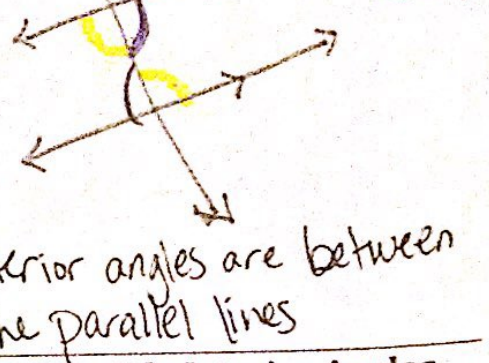 terior angles are between
ne parallel lines